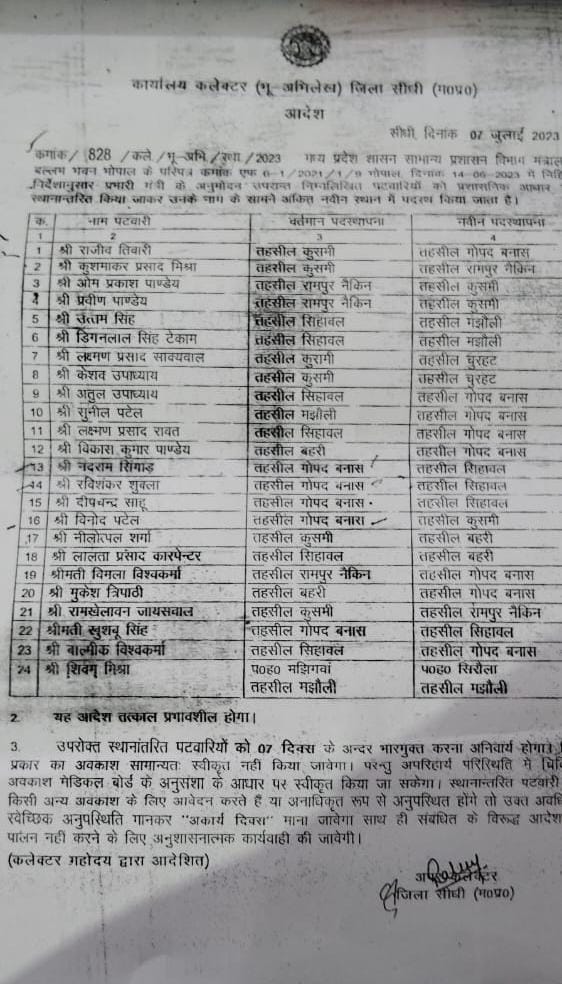 कार्यालय कलेक्टर (भू-अभिलेख) जिला सीधी (म0प्र0)
आदेश
सीधी, दिनांक 07 जुलाई 2023
कमांक/ 828 /कले/भू-अभि/स्था/2023 मध्य प्रदेश शासन सामान्य प्रशासन विभाग
बल्लभ भवन भोपाल के परिपत्र कमांक एफ 6-1/2021/1/9 भोपाल, दिनांक 14-06-2023 में
निर्देशानुसार प्रभारी मंत्री के अनुमोदन उपरान्त निम्नलिखित पटवारियों को प्रशासनिक आधार
स्थानान्तरित किया जाकर उनके नाम के सामने अंकित नवीन स्थान में पदस्थ किया जाता है।
क. नाम पटवारी वर्तमान पदस्थापना नवीन पदस्थापना
1 2 3 4
1 श्री राजीव तिवारी तहसील कुसमी तहसील गोपद बनास
2 श्री कुशमाकर प्रसाद मिश्रा तहसील कुसमी तहसील रामपुर नैकिन
3 श्री ओम प्रकाश पाण्डेय तहसील रामपुर नैकिन तहसील कुसमी
4 श्री प्रवीण पाण्डेय तहसील रामपुर नैकिन तहसील कुसमी
5 श्री उत्तम सिंह तहसील सिहावल तहसील मझौली
6 श्री डिगनलाल सिंह टेकाम तहसील सिहावल तहसील मझौली
7 श्री लक्ष्मण प्रसाद साक्यवाल तहसील कुसमी तहसील चुरहट
8 श्री केशव उपाध्याय तहसील कुसमी तहसील चुरहट
9 श्री अतुल उपाध्याय तहसील सिहावल तहसील गोपद बनास
10 श्री सुनील पटेल तहसील मझौली तहसील गोपद बनास
11 श्री लक्ष्मण प्रसाद रावत तहसील सिहावल तहसील गोपद बनास
12 श्री विकास कुमार पाण्डेय तहसील बहरी तहसील गोपद बनास
13 श्री नंदराम सिंगाड़ तहसील गोपद बनास तहसील सिहावल
14 श्री रविशंकर शुक्ला तहसील गोपद बनास तहसील सिहावल
15 श्री दीपचन्द्र साहू तहसील गोपद बनास तहसील सिहावल
16 श्री विनोद पटेल तहसील गोपद बनास तहसील कुसमी
17 श्री नीलोत्पल शर्मा तहसील कुसमी तहसील बहरी
18 श्री लालता प्रसाद कारपेन्टर तहसील सिहावल तहसील बहरी
19 श्रीमती विमला विश्वकर्मा तहसील रामपुर नैकिन तहसील गोपद बनास
20 श्री मुकेश त्रिपाठी तहसील बहरी तहसील गोपद बनास
21 श्री रामखेलावन जायसवाल तहसील कुसमी तहसील रामपुर नैकिन
22 श्रीमती खुशबू सिंह तहसील गोपद बनास तहसील सिहावल
23 श्री बाल्मीक विश्वकर्मा तहसील सिहावल तहसील गोपद बनास
24 श्री शिवम् मिश्रा प0ह0 मझिगवां प0ह0 सिरौला
तहसील मझौली तहसील मझौली
2. यह आदेश तत्काल प्रभावशील होगा।
3. उपरोक्त स्थानांतरित पटवारियों को 07 दिवस के अन्दर भारमुक्त करना अनिवार्य होगा।
प्रकार का अवकाश सामान्यतः स्वीकृत नहीं किया जावेगा। परन्तु अपरिहार्य परिस्थिति में
अवकाश मेडिकल बोर्ड के अनुसंशा के आधार पर स्वीकृत किया जा सकेगा। स्थानान्तरित पटवारी
किसी अन्य अवकाश के लिए आवेदन करते हैं या अनाधिकृत रूप से अनुपस्थित होंगे तो उक्त
स्वेच्छिक अनुपस्थिति मानकर "अकार्य दिवस" माना जावेगा साथ ही संबंधित के विरूद्ध आदेश
पालन नहीं करने के लिए अनुशासनात्मक कार्यवाही की जावेगी।
(कलेक्टर महोदय द्वारा आदेशित)
अपर कलेक्टर
जिला सीधी (म0प्र0)